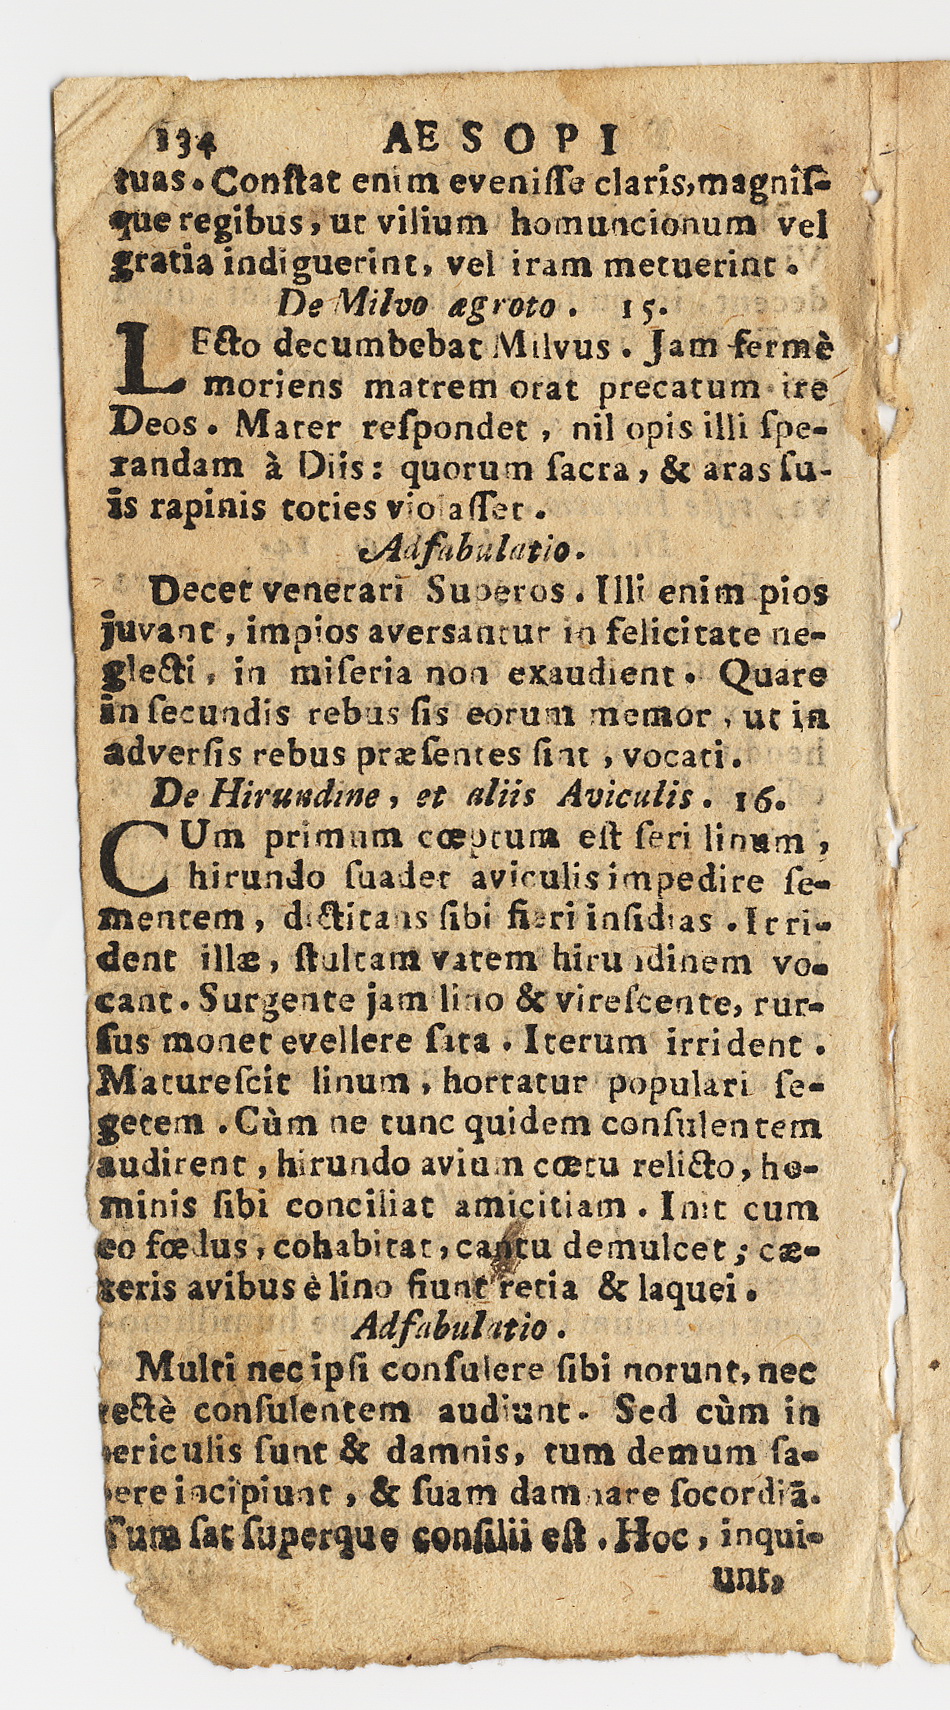 134 AESOPI
tuas. Conſtat enim eveniſſe claris, magniſ-
que regibus, ut vilium homuncionum vel
gratia indiguerint, vel iram metuerint.
De Milvo ægroto. 15.
LEcto decumbebat Milvus. Jam fermè
moriens matrem orat precatum ire
Deos. Mater reſpondet, nil opis illi ſpe-
randam à Diis: quorum ſacra, & aras ſu-
is rapinis toties violaſſet.
Adfabulatio.
Decet venerari Superos. Illi enim pios
juvant, impios averſantur in felicitate ne-
glecti, in miſeria non exaudient. Quare
in ſecundis rebus ſis eorum memor, ut in
adverſis rebus præſentes ſint, vocati.
De Hirundine, et aliis Aviculis. 16.
CUm primum cœptum eſt ſeri linum,
hirundo ſuadet aviculis impedire ſe-
mentem, dictitans ſibi fieri inſidias. Irri-
dent illæ, ſtultam vatem hirundinem vo-
cant. Surgente jam lino & vireſcente, rur-
ſus monet evellere ſata. Iterum irrident.
Matureſcit linum, hortatur populari ſe-
getem. Cùm ne tunc quidem conſulentem
audirent, hirundo avium cœtu relicto, ho-
minis ſibi conciliat amicitiam. Init cum
eo fœdus, cohabitat, cantu demulcet; cæ-
teris avibus è lino fiunt retia & laquei.
Adfabulatio.
Multi nec ipſi conſulere ſibi norunt, nec
rectè conſulentem audiunt. Sed cùm in
periculis ſunt & damnis, tum demum ſa-
pere incipiunt, & ſuam damnare ſocordiā.
Tum ſat ſuperque conſilii eſt. Hoc, inqui-
unt,